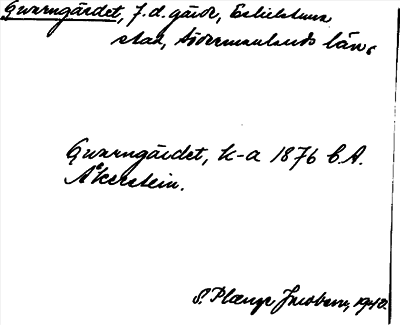 Qwarngärdet, f.d. gård, Eskilstuna
stad, Södermanlands län.
Qwarngärdet, k-a 1876 b. A.
Åkerstein.
S. Plænge Jacobson, 1940.